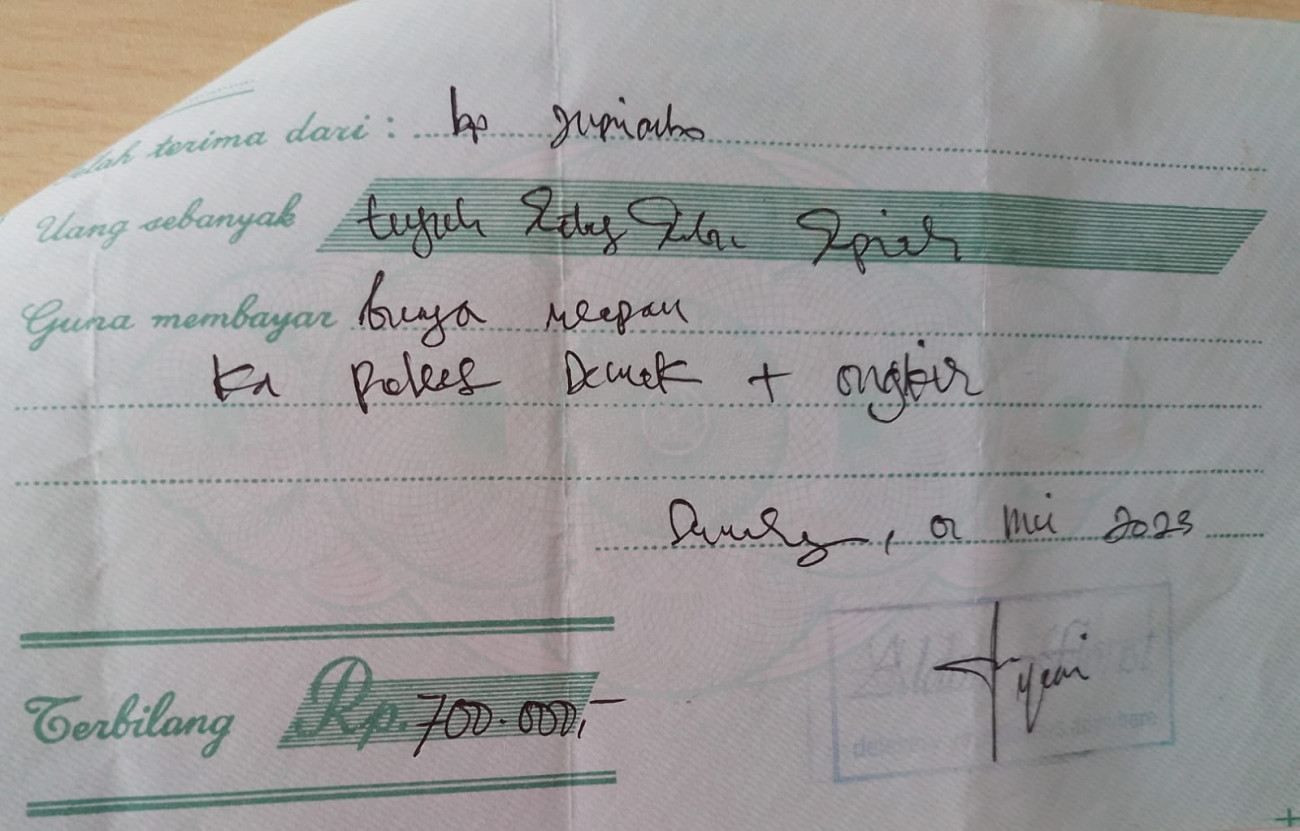 elah terima dari : bp Juprianto
Uang sebanyak tujuh Ratus Ribu Rupiah
Guna membayar bunga ucapan
Ka Polres Demak + ongkir
, 02 Mei 2023
Terbilang Rp. 700.000,-